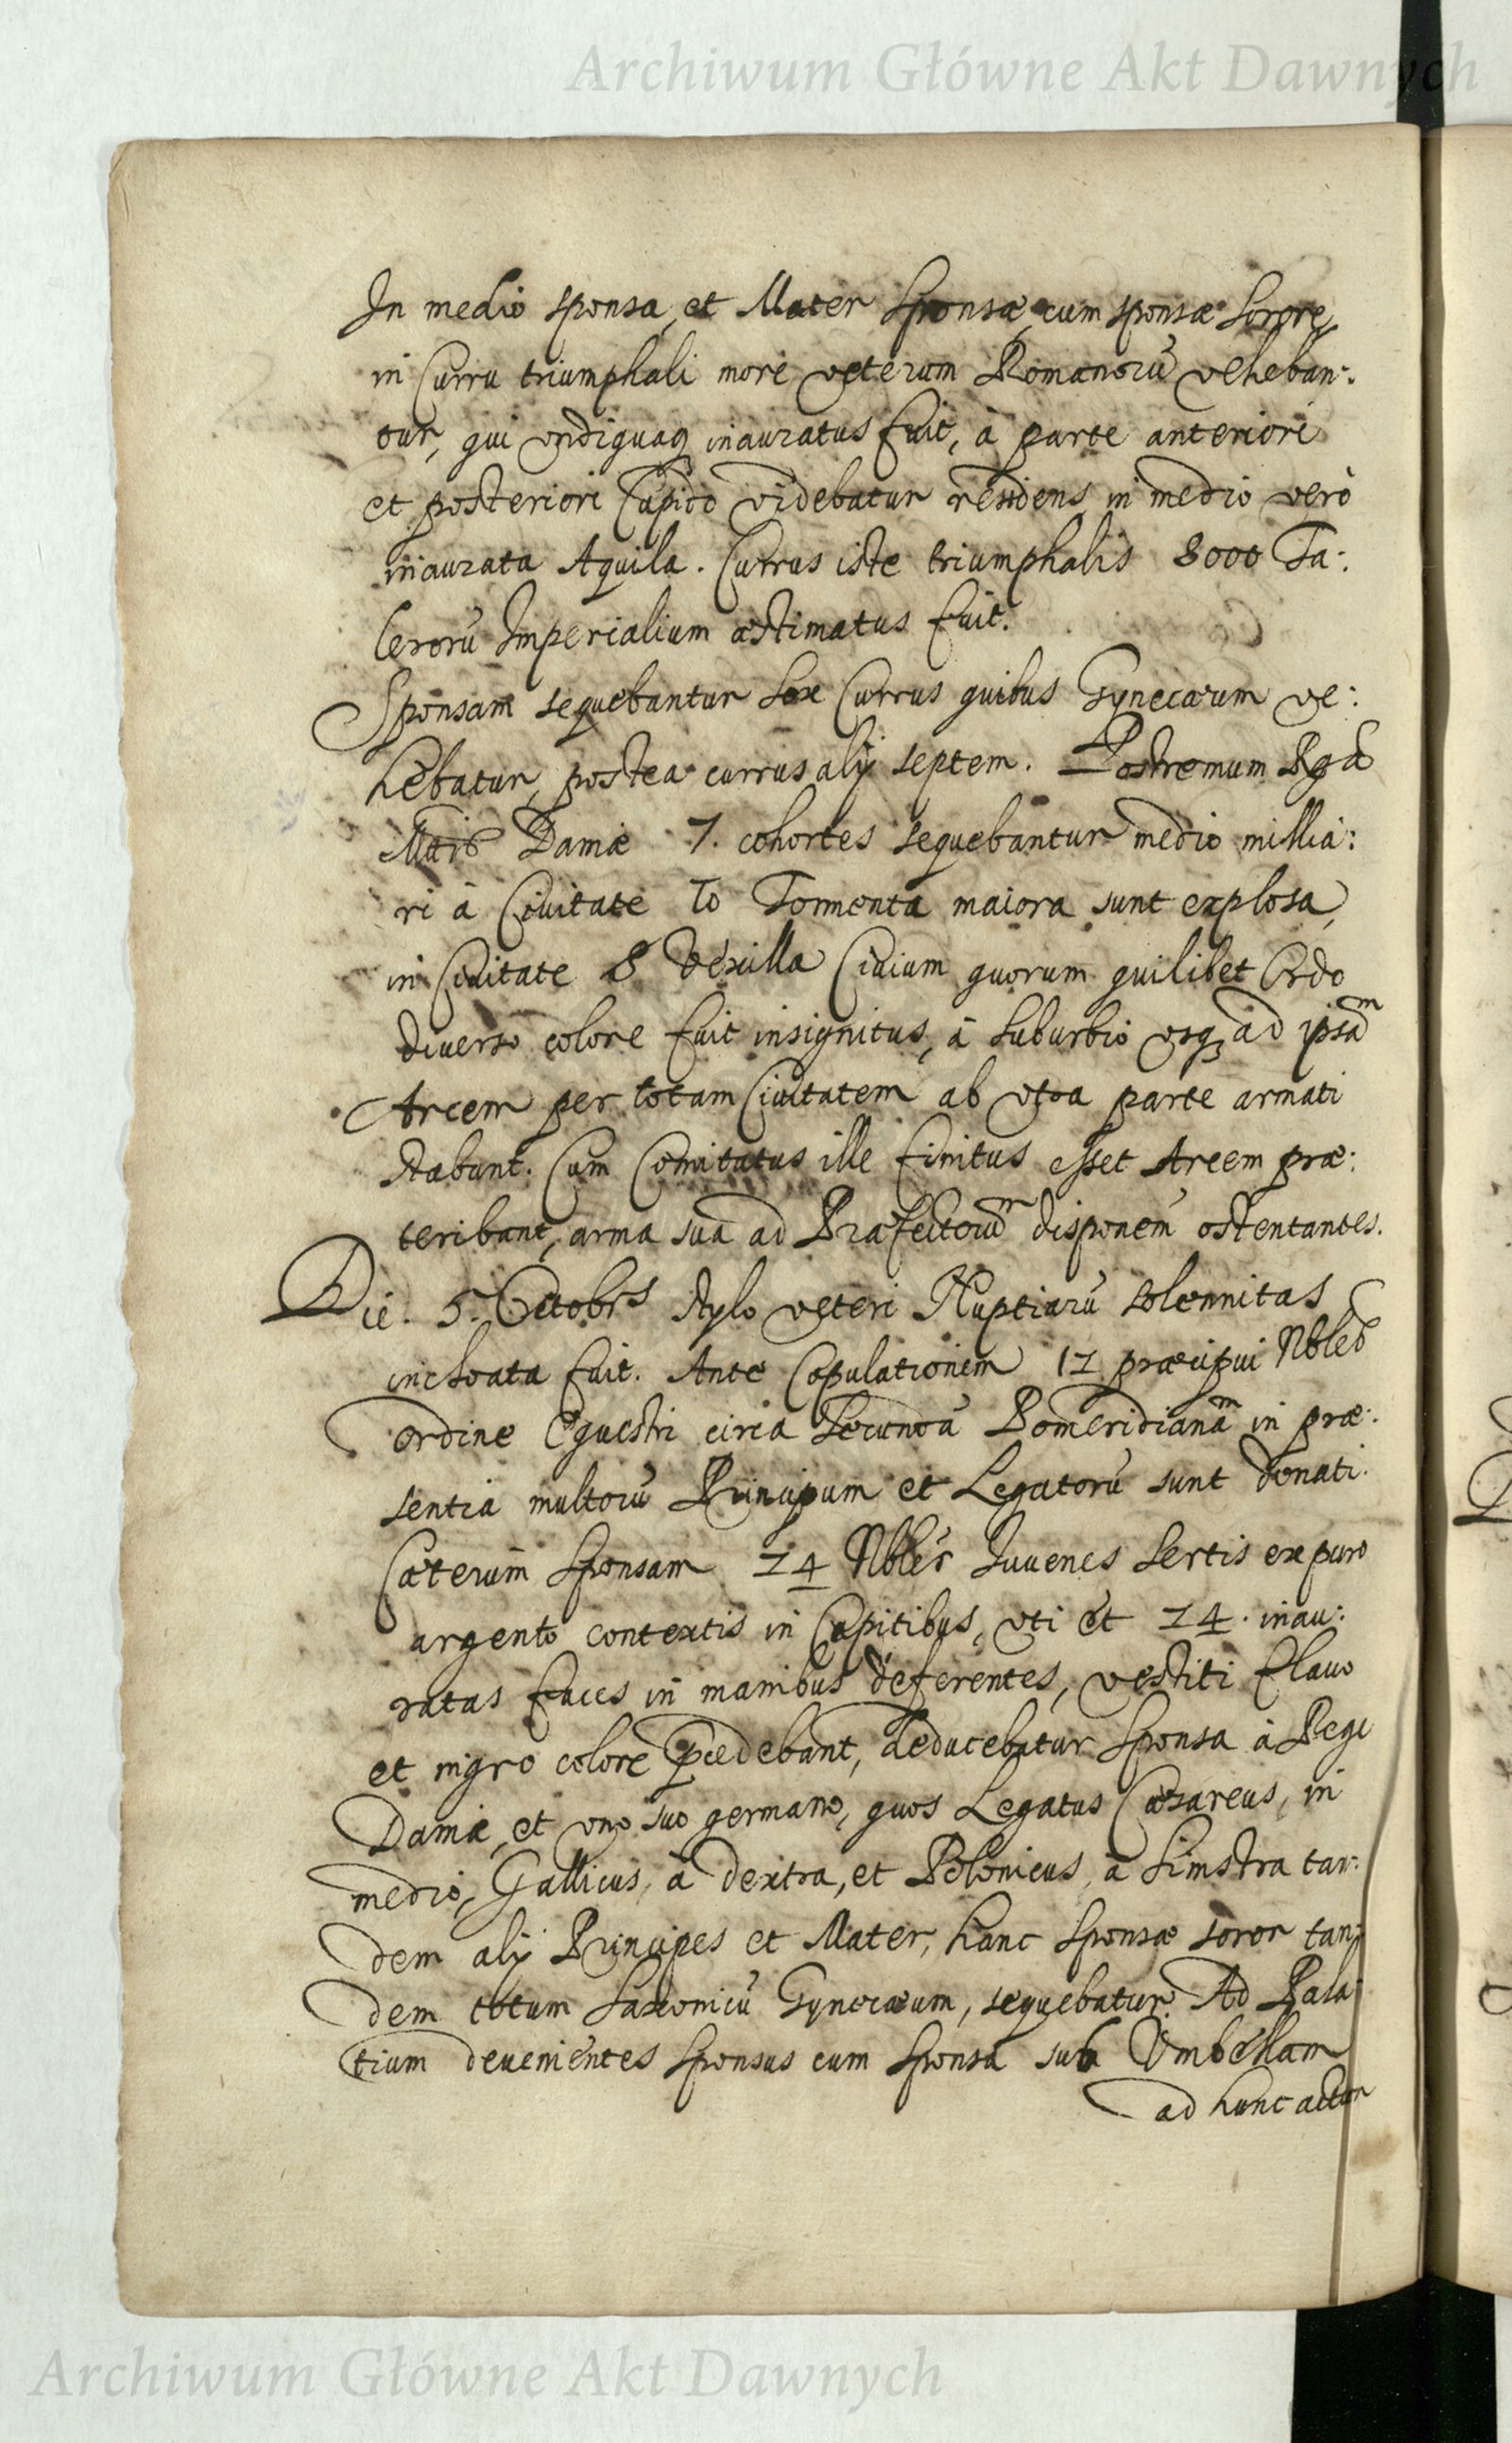 Archiwum Główne Akt Dawnych
In medio sponsa, et Mater Sponsæ, cum sponsæ Sorore,
in Curru triumphali more veterum Romanorũ veheban:
tur, qui vndiquaq3 inauratus fuit, à parte anteriori
et posteriori Cupido videbatur residens, in medio verò
inaurata Aquila. Currus iste triumphalis 8000 Ta:
lerorũ Imperialium æstimatus fuit.
Sponsam sequebantur Sex Currus quibus Gynecæum ve:
hebatur, postea currus alij septem. Postremum
Mtis Daniæ 7. cohortes sequebantur medio millia:
ri à Ciuitate 10 Tormenta maiora sunt explosa,
in Ciuitate 8 Vexilla Ciuium quorum quilibet Ordo
diuerso colore fuit insignitus, à Suburbio vsq3 ad ipsam
Arcem per totam Ciuitatem ab vtra parte armati
stabunt. Cum Comitatus ille finitus esset Arcem præ:
teribant, arma sua ad Præfectorum disponem̃ ostentantes.
Die. 5. Octobris stylo veteri Nuptiarũ solennitas
inchoata fuit. Ante Copulationem 17 præcipui Nbles
ordine Equestri circa Secundã Pomeridianam in præ:
sentia multorũ Principum et Legatorũ sunt donati.
Cæterum Sponsam 14 Nbles Iuuenes Sertis ex puro
argento contextis in Capitibus, vti et 14. inau:
ratas faces in manibus deferentes, vestiti flauo
et nigro colore p̃cedebant, deducebatur Sponsa à Rege
Daniæ, et vno suo germano, quos Legatus Cæsareus, in
medio, Gallicus, à dextra, et Polonicus, à Sinistra tan:
dem alij Principes et Mater, hanc Sponsæ soror tan:
dem totum Saxonicũ Gynecæum, sequebatur. Ad Pala:
tium deuenientes Sponsus cum Sponsa sub Vmbellam
ad hunc actum
Archiwum Główne Akt Dawnych